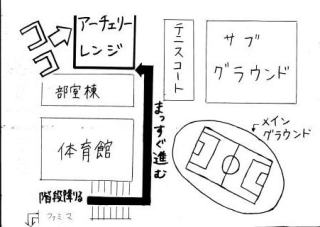 ココ
アーチェリー
レンジ
テニスコート
サブ
グラウンド
部室棟
まっすぐ進む
体育館
メイン
グラウンド
階段降りる
ファミマ